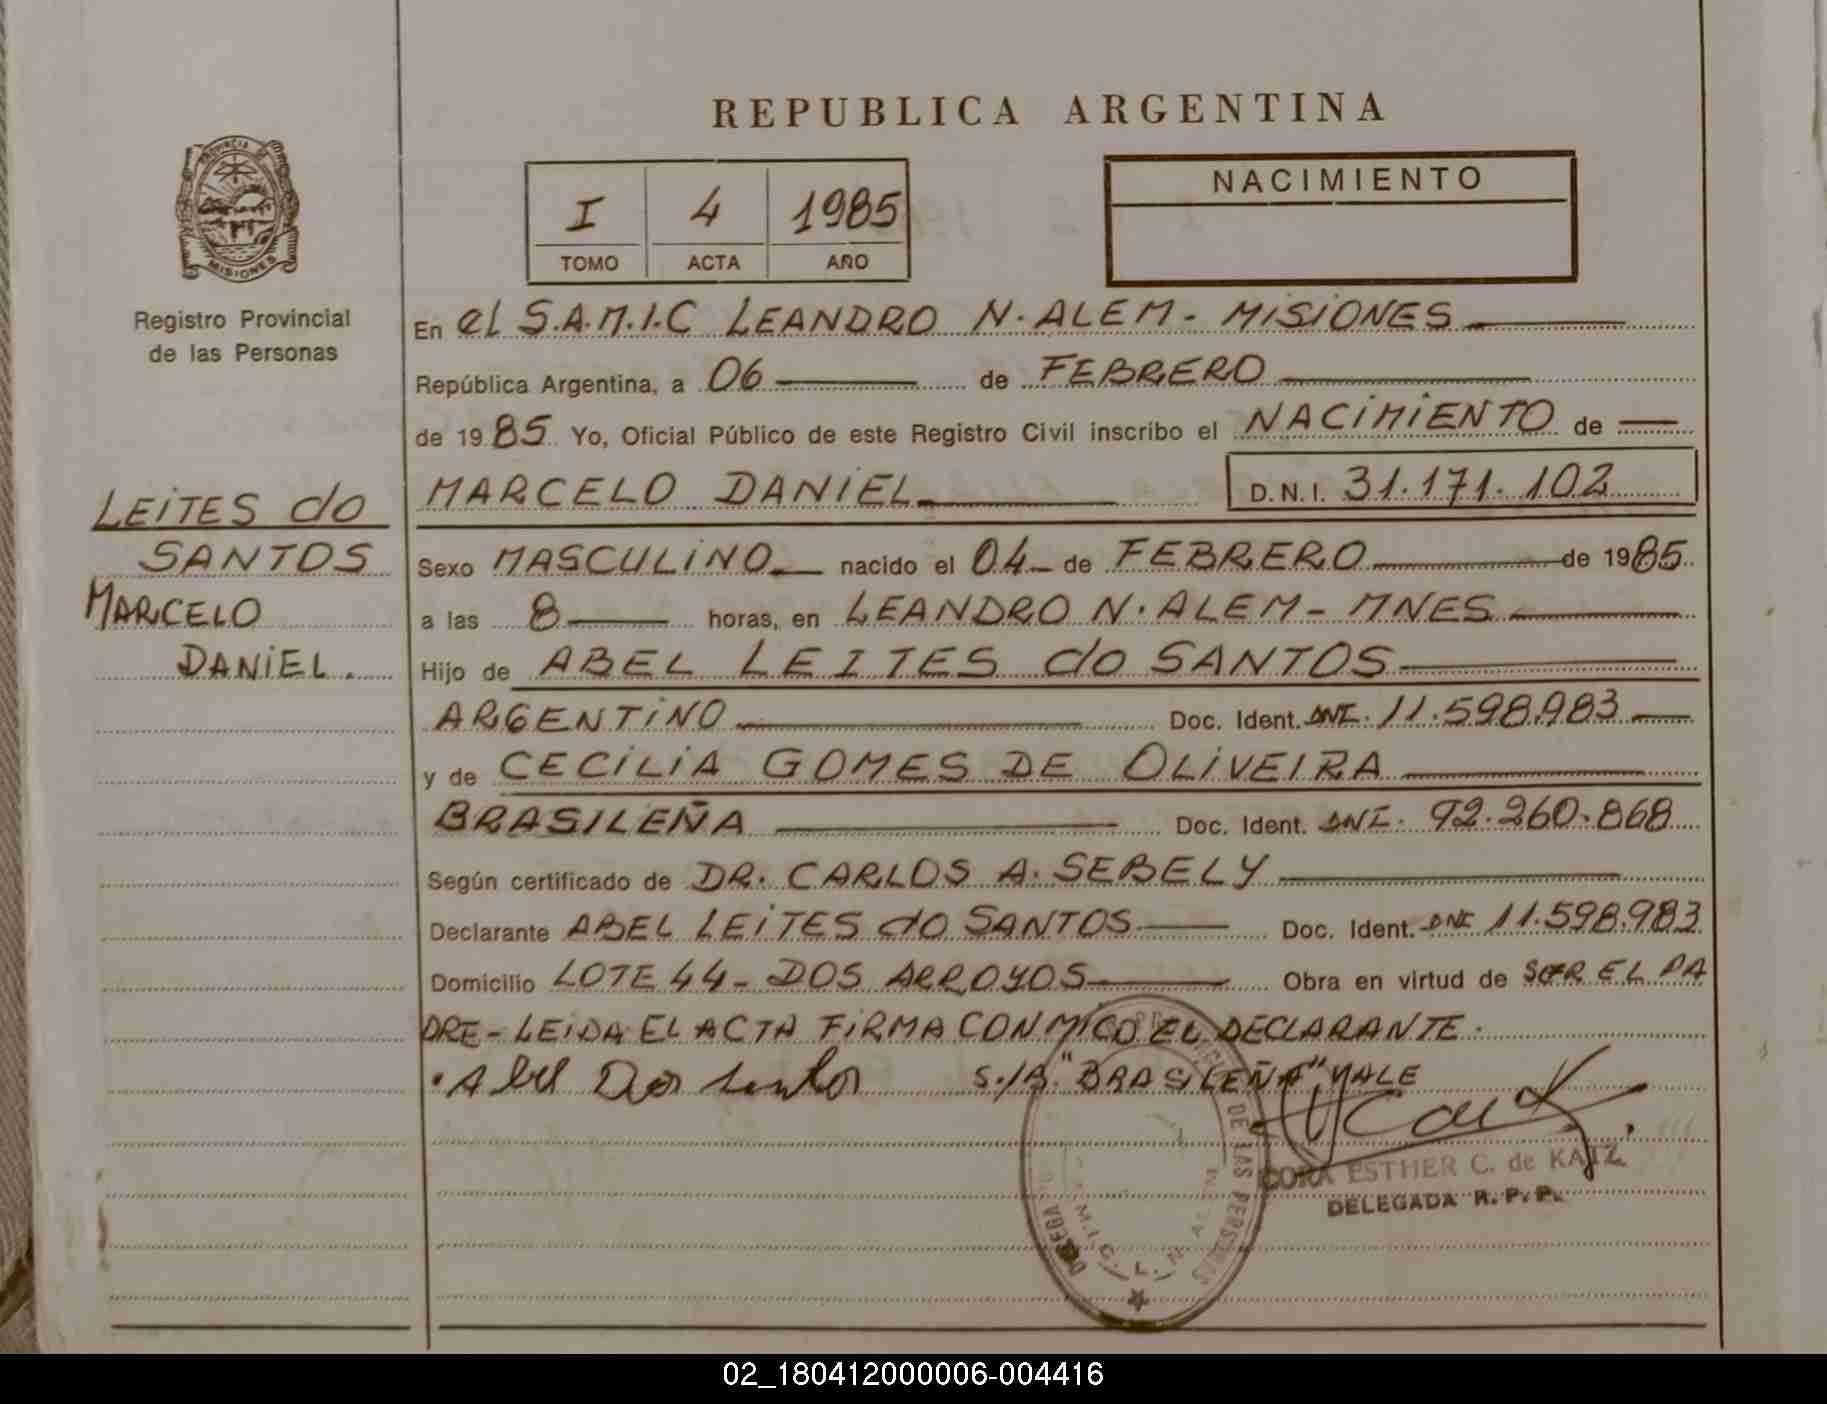 REPUBLICA ARGENTINA
PROVINCIA DE
MISIONES
Registro Provincial
de las Personas
I 4 1985
TOMO ACTA AÑO
NACIMIENTO
En el S.A.M.I.C LEANDRO N. ALEM - MISIONES
República Argentina, a 06 de FEBRERO
de 1985 Yo, Oficial Público de este Registro Civil inscribo el NACIMIENTO de
MARCELO DANIEL D.N.I. 31.171.102
LEITES do
SANTOS
MARCELO
DANIEL.
Sexo MASCULINO nacido el 04 de FEBRERO de 1985
a las 8 horas, en LEANDRO N. ALEM - MNES
Hijo de ABEL LEITES do SANTOS
ARGENTINO Doc. Ident. DNI. 11.598.983
y de CECILIA GOMES DE OLIVEIRA
BRASILEÑA Doc. Ident. DNI. 92.260.868
Según certificado de DR. CARLOS A. SEBELY
Declarante ABEL LEITES do SANTOS Doc. Ident. DNI 11.598.983
Domicilio LOTE 44 - DOS ARROYOS Obra en virtud de SER EL PA
DRE - LEIDA EL ACTA FIRMA CONMIGO EL DECLARANTE.
Abel Dos santos S./B. "BRASILEÑA" VALE
CORA ESTHER C. de KATZ
DELEGADA R. P. P.
DE LAS PERSONAS
02_180412000006-004416